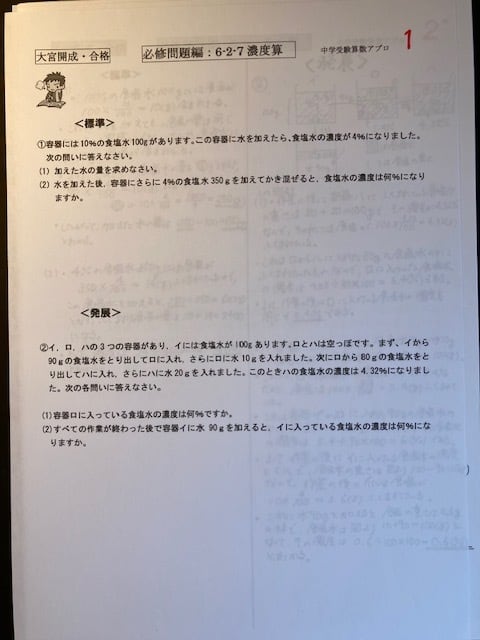 大宮開成・合格
必修問題編：6-2-7 濃度算
中学受験算数アプロ
1
2
＜標準＞
①容器には10％の食塩水100gがあります。この容器に水を加えたら、食塩水の濃度が4％になりました。
次の問いに答えなさい。
(1) 加えた水の量を求めなさい。
(2) 水を加えた後，容器にさらに4％の食塩水350ｇを加えてかき混ぜると，食塩水の濃度は何％になり
ますか。
＜発展＞
②イ，ロ，ハの3つの容器があり，イには食塩水が100gあります。ロとハは空っぽです。まず，イから
90ｇの食塩水をとり出してロに入れ，さらにロに水10ｇを入れました。次にロから80ｇの食塩水をと
り出してハに入れ，さらにハに水20ｇを入れました。このときハの食塩水の濃度は4.32％になりまし
た。次の各問いに答えなさい。
(1)容器ロに入っている食塩水の濃度は何％ですか。
(2)すべての作業が終わった後で容器イに水 90ｇを加えると，イに入っている食塩水の濃度は何％にな
りますか。